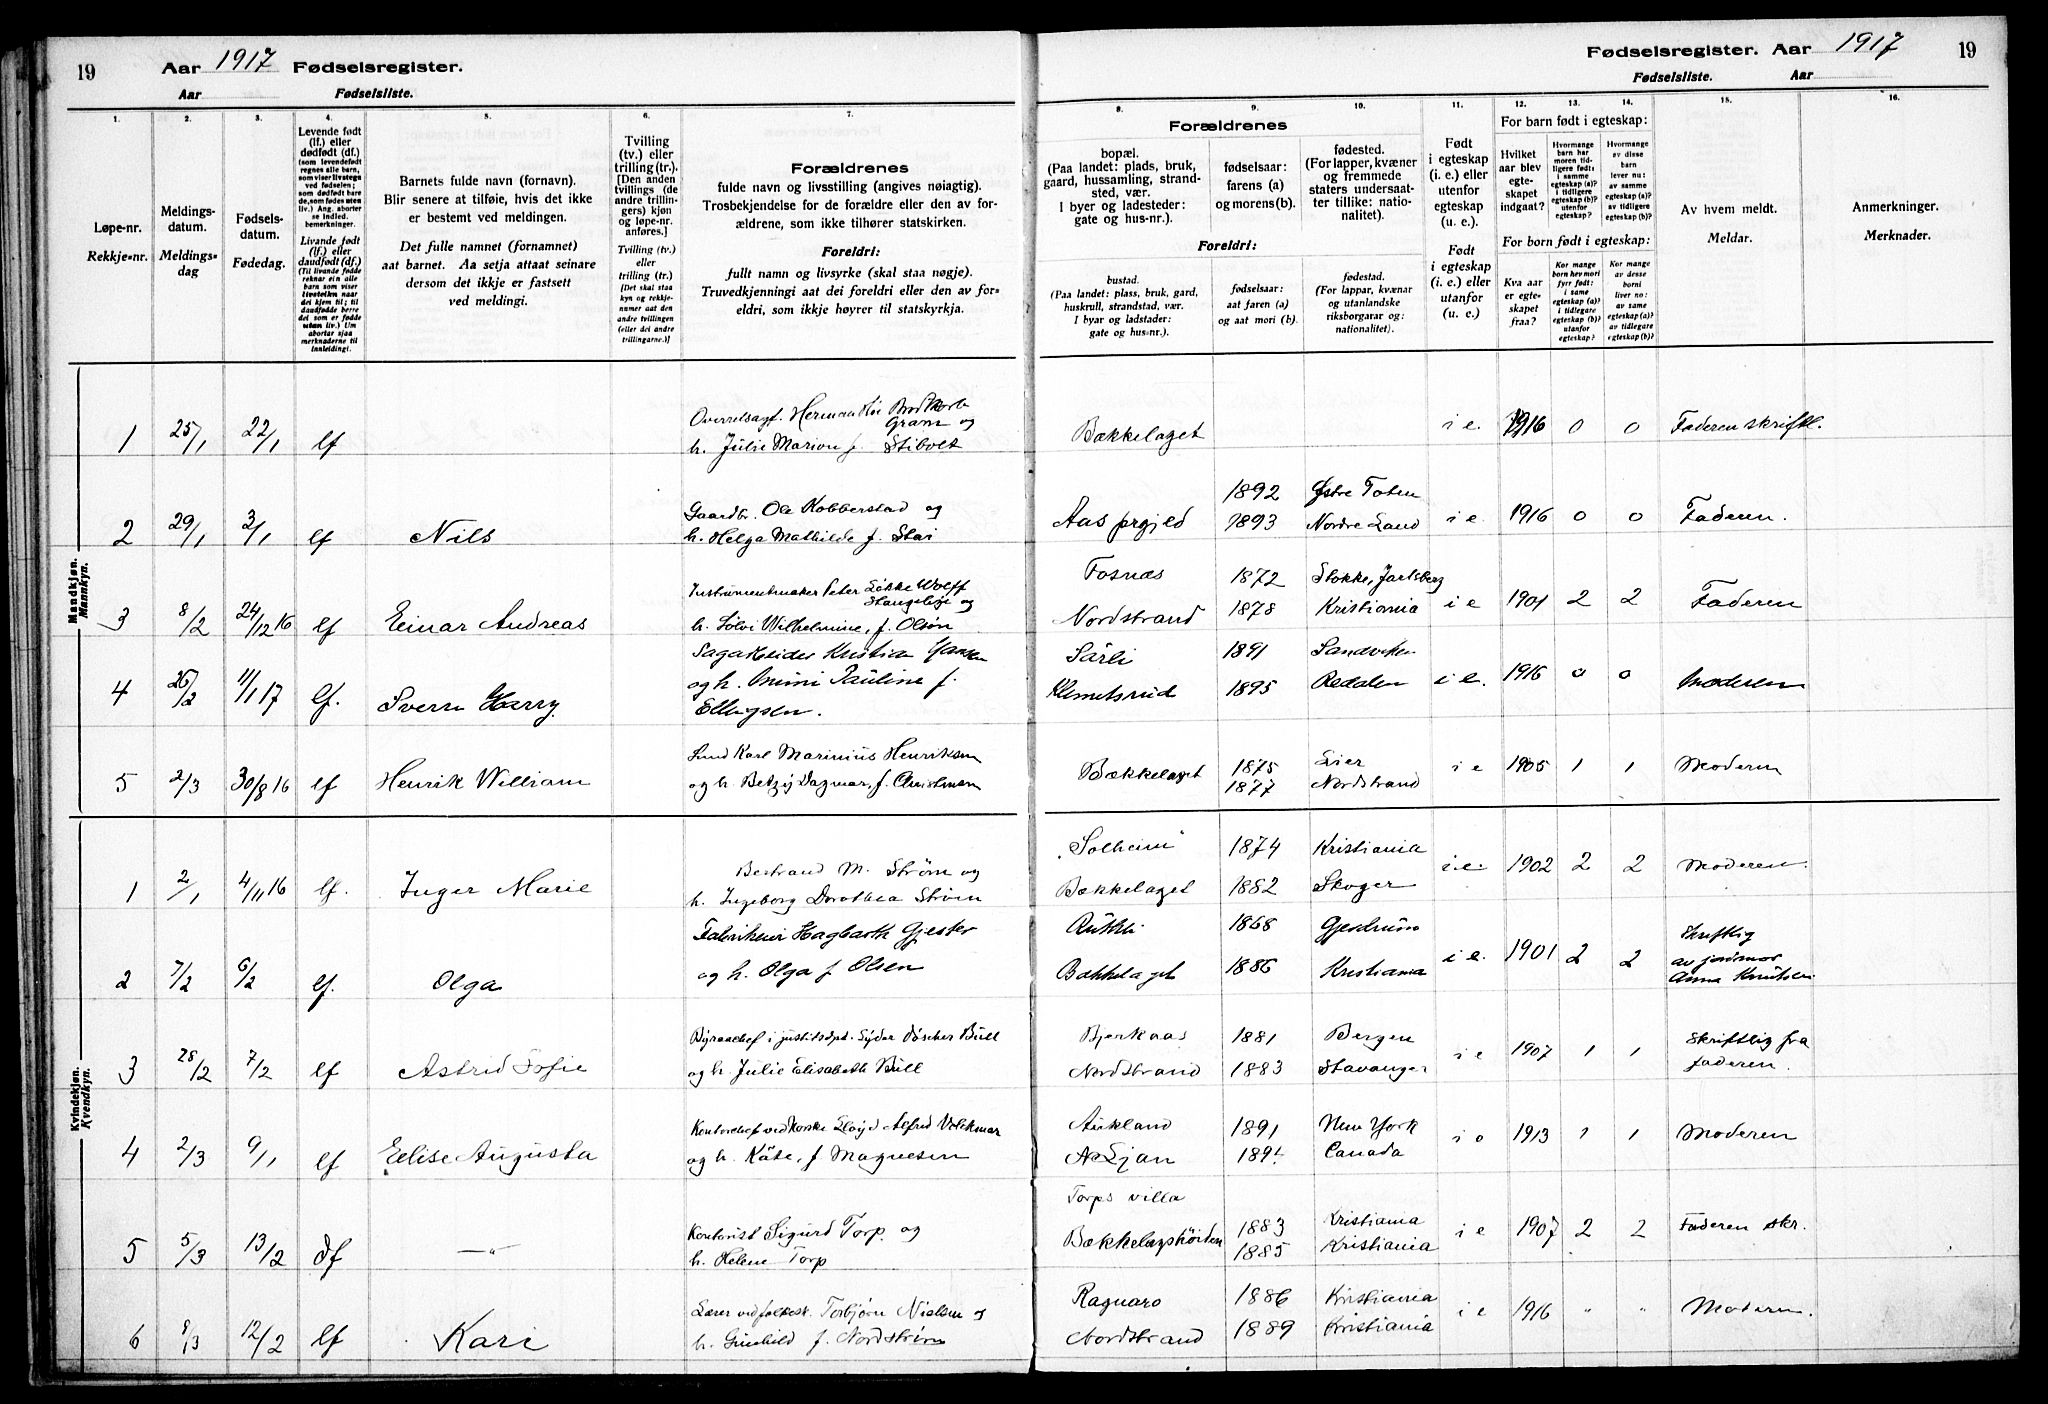 19
Aar 1917 Fødselsregister.
Aar Fødselsliste.
Fødselsregister. Aar 1917
19
Fødselsliste. Aar
1. 2. 3. 4. 5. 6. 7. 8. 9. 10. 11. 12. 13. 14. 15. 16.
Løpe-nr.
Rekkje-nr.
Meldings-
datum.
Meldings-
dag
Fødsels-
datum.
Fødedag.
Levende født
(lf.) eller
dødfødt (df.)
(som levendefødt
regnes alle barn,
som viser livstegn
ved fødselen;
som dødfødt bare
de, som fødes uten
liv.) Ang. aborter
se indled.
bemerkninger.
Livande født
(lf.) eller
daudfødt (df.)
(Til livande fødde
reknar ein alle
barn som viser
livsteikn naar
dei kjem til; til
daudfødde berre
dei som er fødde
utan liv.) Um
abortar sjaa
merknaderne til
innleiding!
Barnets fulde navn (fornavn).
Blir senere at tilføie, hvis det ikke
er bestemt ved meldingen.
Det fulle namnet (fornamnet)
aat barnet. Aa setja attaat seinare
dersom det ikkje er fastsett
ved meldingi.
Tvilling
(tv.) eller
trilling (tr.).
[Den anden
tvillings (de
andre trillin-
gers) kjøn
og løpe-nr.
anføres.]
Tvilling (tv.)
eller
trilling (tr.)
[Det skal staa
kyn og rekkje-
nummer aat den
andre tvillingen
(eller dei andre
trillingarne.)]
Forældrenes
fulde navn og livsstilling (angives nøiagtig).
Trosbekjendelse for de forældre eller den av for-
ældrene, som ikke tilhører statskirken.
Foreldri:
fullt namn og livsyrke (skal staa nøgje).
Truvedkjenningi aat dei foreldri eller den av for-
eldri, som ikkje høyrer til statskyrkja.
Forældrenes
bopæl.
(Paa landet: plads, bruk,
gaard, hussamling, strand-
sted, vær.
I byer og ladesteder:
gate og hus-nr.).
fødselsaar:
farens (a)
og morens (b).
fødested.
(For lapper, kvæner
og fremmede
staters undersaat-
ter tillike: natio-
nalitet).
Foreldri:
bustad.
(Paa landet: plass, bruk, gard,
huskrull, strandstad, vær.
I byar og ladstader:
gate og hus-nr.).
fødselsaar:
aat faren (a)
og aat mori (b).
fødestad.
(For lappar, kvænar
og utanlandske
riksborgarar og:
nationalitet).
Født
i egteskap
(i. e.) eller
utenfor
egteskap
(u. e.).
Født
i egteskap
(i. e.) eller
utanfor
(u. e.)
For barn født i egteskap:
Hvilket
aar blev
egte-
skapet
indgaat?
Hvormange
barn har
moren tid-
ligere født:
i samme
egteskap (a)?
i tidligere
egteskap (b)?
utenfor
egteskap?
Hvormange
av disse
barn
lever nu:
av samme
egteskap (a)?
av tidligere
egteskap (b)?
For born født i egteskap:
Kva aar
er egte-
skapet
fraa?
Kor mange
born hev mori
fyrr født:
i same
egteskap (a)?
i tidlegare
egteskap (b)?
utanfor
egteskap?
Kor mange
av desse
borni
liver no:
av same
egteskap (a)?
av tidlegare
egteskap (b)?
Av hvem meldt.
Meldar.
Anmerkninger.
Merknader.
Mandkjøn.
Mannkyn.
1 25/1 22/1 lf Herman
Gram og
h. Julie Marion f. Stibolt Bækkelaget i e. 1916 0 0 Faderen skriftl.
2 29/1 3/1 lf Nils Gaardbr. Ole Kobberstad og
h. Helga Mathilde f. Aas prgjeld 1892 Østre Toten
1893 Nordre Land i e. 1916 0 0 Faderen.
3 8/2 24/12 16 lf Einar Andreas Instrumentmaker Peter Løkke Wolff
Stangebye og
h. Sølvi Wilhelmine, f. Olsøn Fosnæs
Nordstrand 1872 Stokke, Jarlsberg
1878 Kristiania i e 1901 2 2 Faderen
4 26/2 11/1 17 lf. Sverre Harry Kristian
og h. Pauline f.
Ellingsen. Klemetsrud 1891
1895 i e. 1916 0 0 Moderen
5 2/3 30/8 16 lf Henrik William Karl Marinius Henriksen
og h. Betzy Dagmar, f. Bækkelaget 1875 Lier
1877 Nordstrand i e 1905 1 1 Moderen
Kvindekjøn.
Kvendkyn.
1 2/1 4/11 16 lf. Inger Marie Bertrand M. Strøm og
h. Ingeborg Dorothea Strøm „Solheim"
Bækkelaget 1874 Kristiania
1882 Skoger i e. 1902 2 2 Moderen.
2 7/2 6/2 lf. Olga Hagbarth Gjester
og h. Olga f Olsen
Bækkelaget 1868
1886 Kristiania i e. 1901 2 2 Skriftlig
av jordmor
Anna Knutsen
3 28/2 7/2 lf Astrid Sofie Byraachef i justitsdpt. Bull
og h. Julie Elisabeth Bull Bjerkaas
Nordstrand 1881 Bergen
1883 Stavanger i e 1907 1 1 Skriftlig fra
faderen.
4 2/3 9/1 lf Elise Augusta Kontorchef ved Norske Lloyd Alfred Volckmar
og h. Käte, f Magnesen
Ljan 1891 New York
Canada 1913 1 1 Moderen
5 5/3 13/2 df —„— Kontorist Sigurd Torp og
h. Helene Torp Torps villa
Bækkelagshöiden 1883 Kristiania
1885 Kristiania i e 1907 2 2 Faderen skr.
6 8/3 12/2 lf Kari Lærer ved folkesk. Torbjørn Nielsen og
h. Gunhild f. Nordstrøm
Nordstrand 1886 Kristiania
1889 Kristiania i e 1916 " " Moderen.